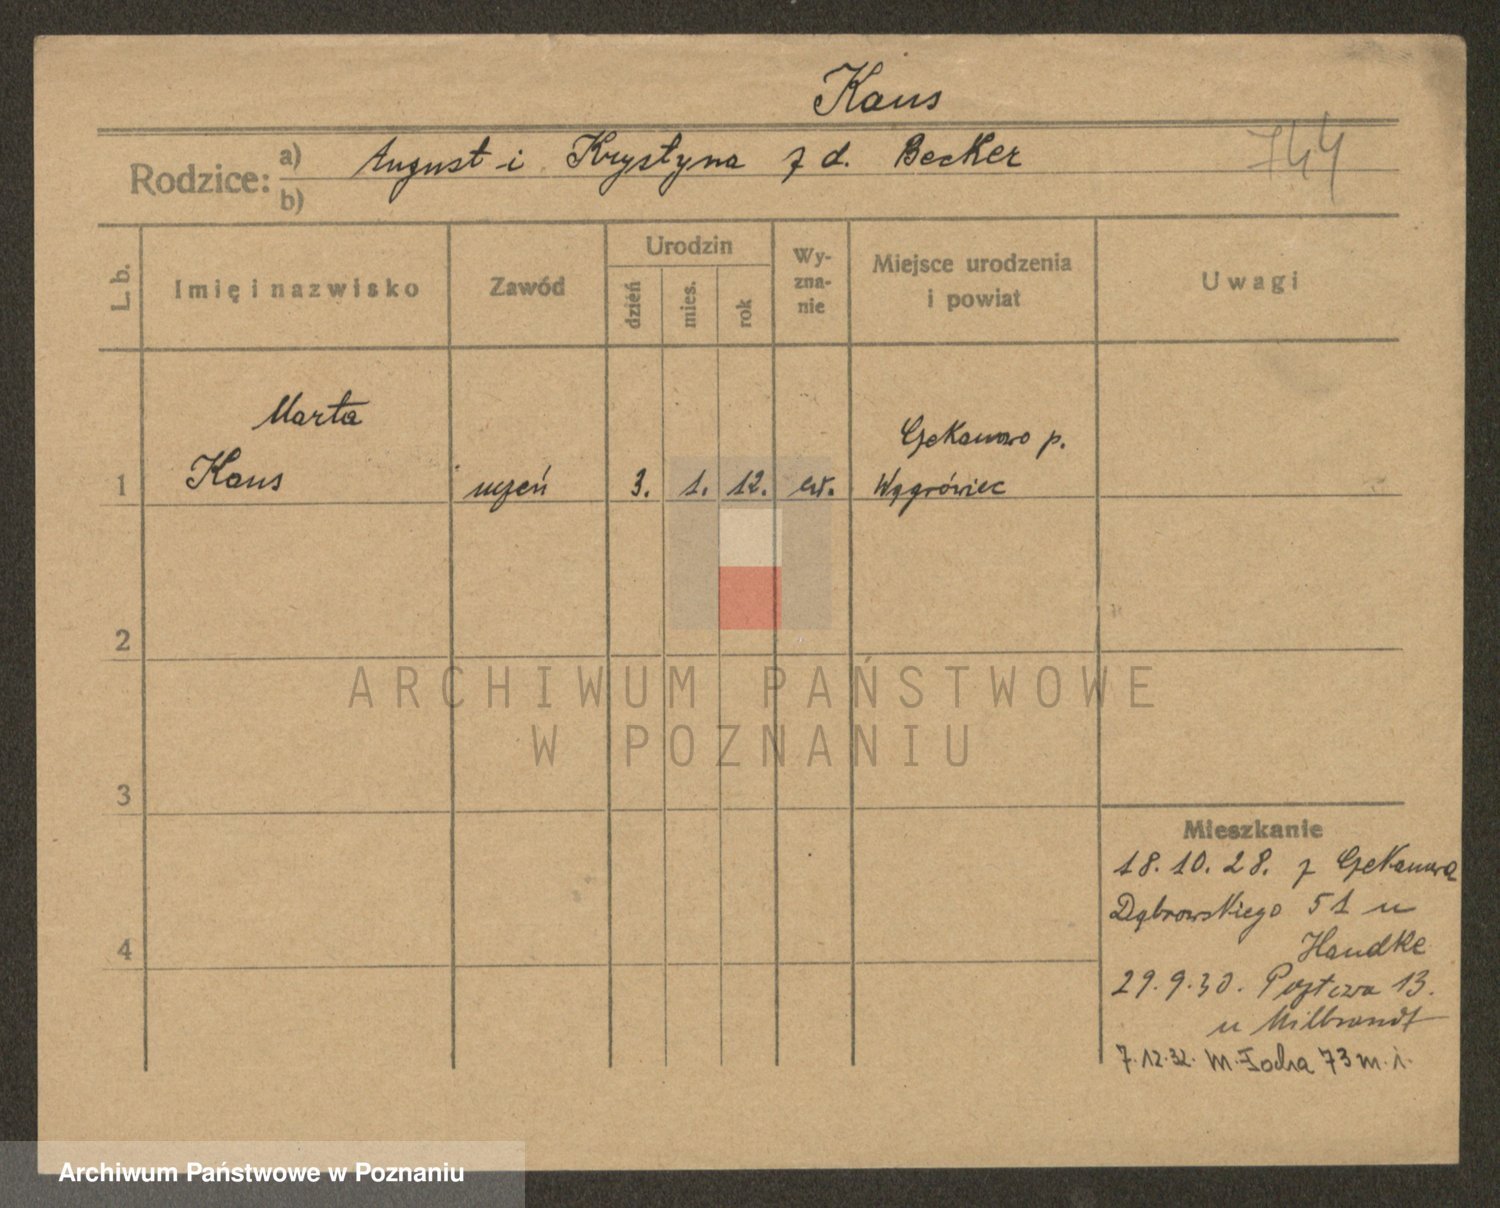 Kaus
Rodzice: a) August i Krystyna z d. Becker 744
b)
L. b. Imię i nazwisko Zawód Urodzin dzień mies. rok Wyznanie Miejsce urodzenia i powiat Uwagi
Marta
Czekanowo p.
1 Kaus uczeń 3. 1. 12. ew. Wągrówiec
2
3
4
Mieszkanie
18.10.28. z Czekanowa
Dąbrowskiego 51 u
Handke
29.9.30. Pocztowa 13.
u Milbrandt
7.12.32. M. Focha 73 m. i.
ARCHIWUM PAŃSTWOWE
W POZNANIU
Archiwum Państwowe w Poznaniu